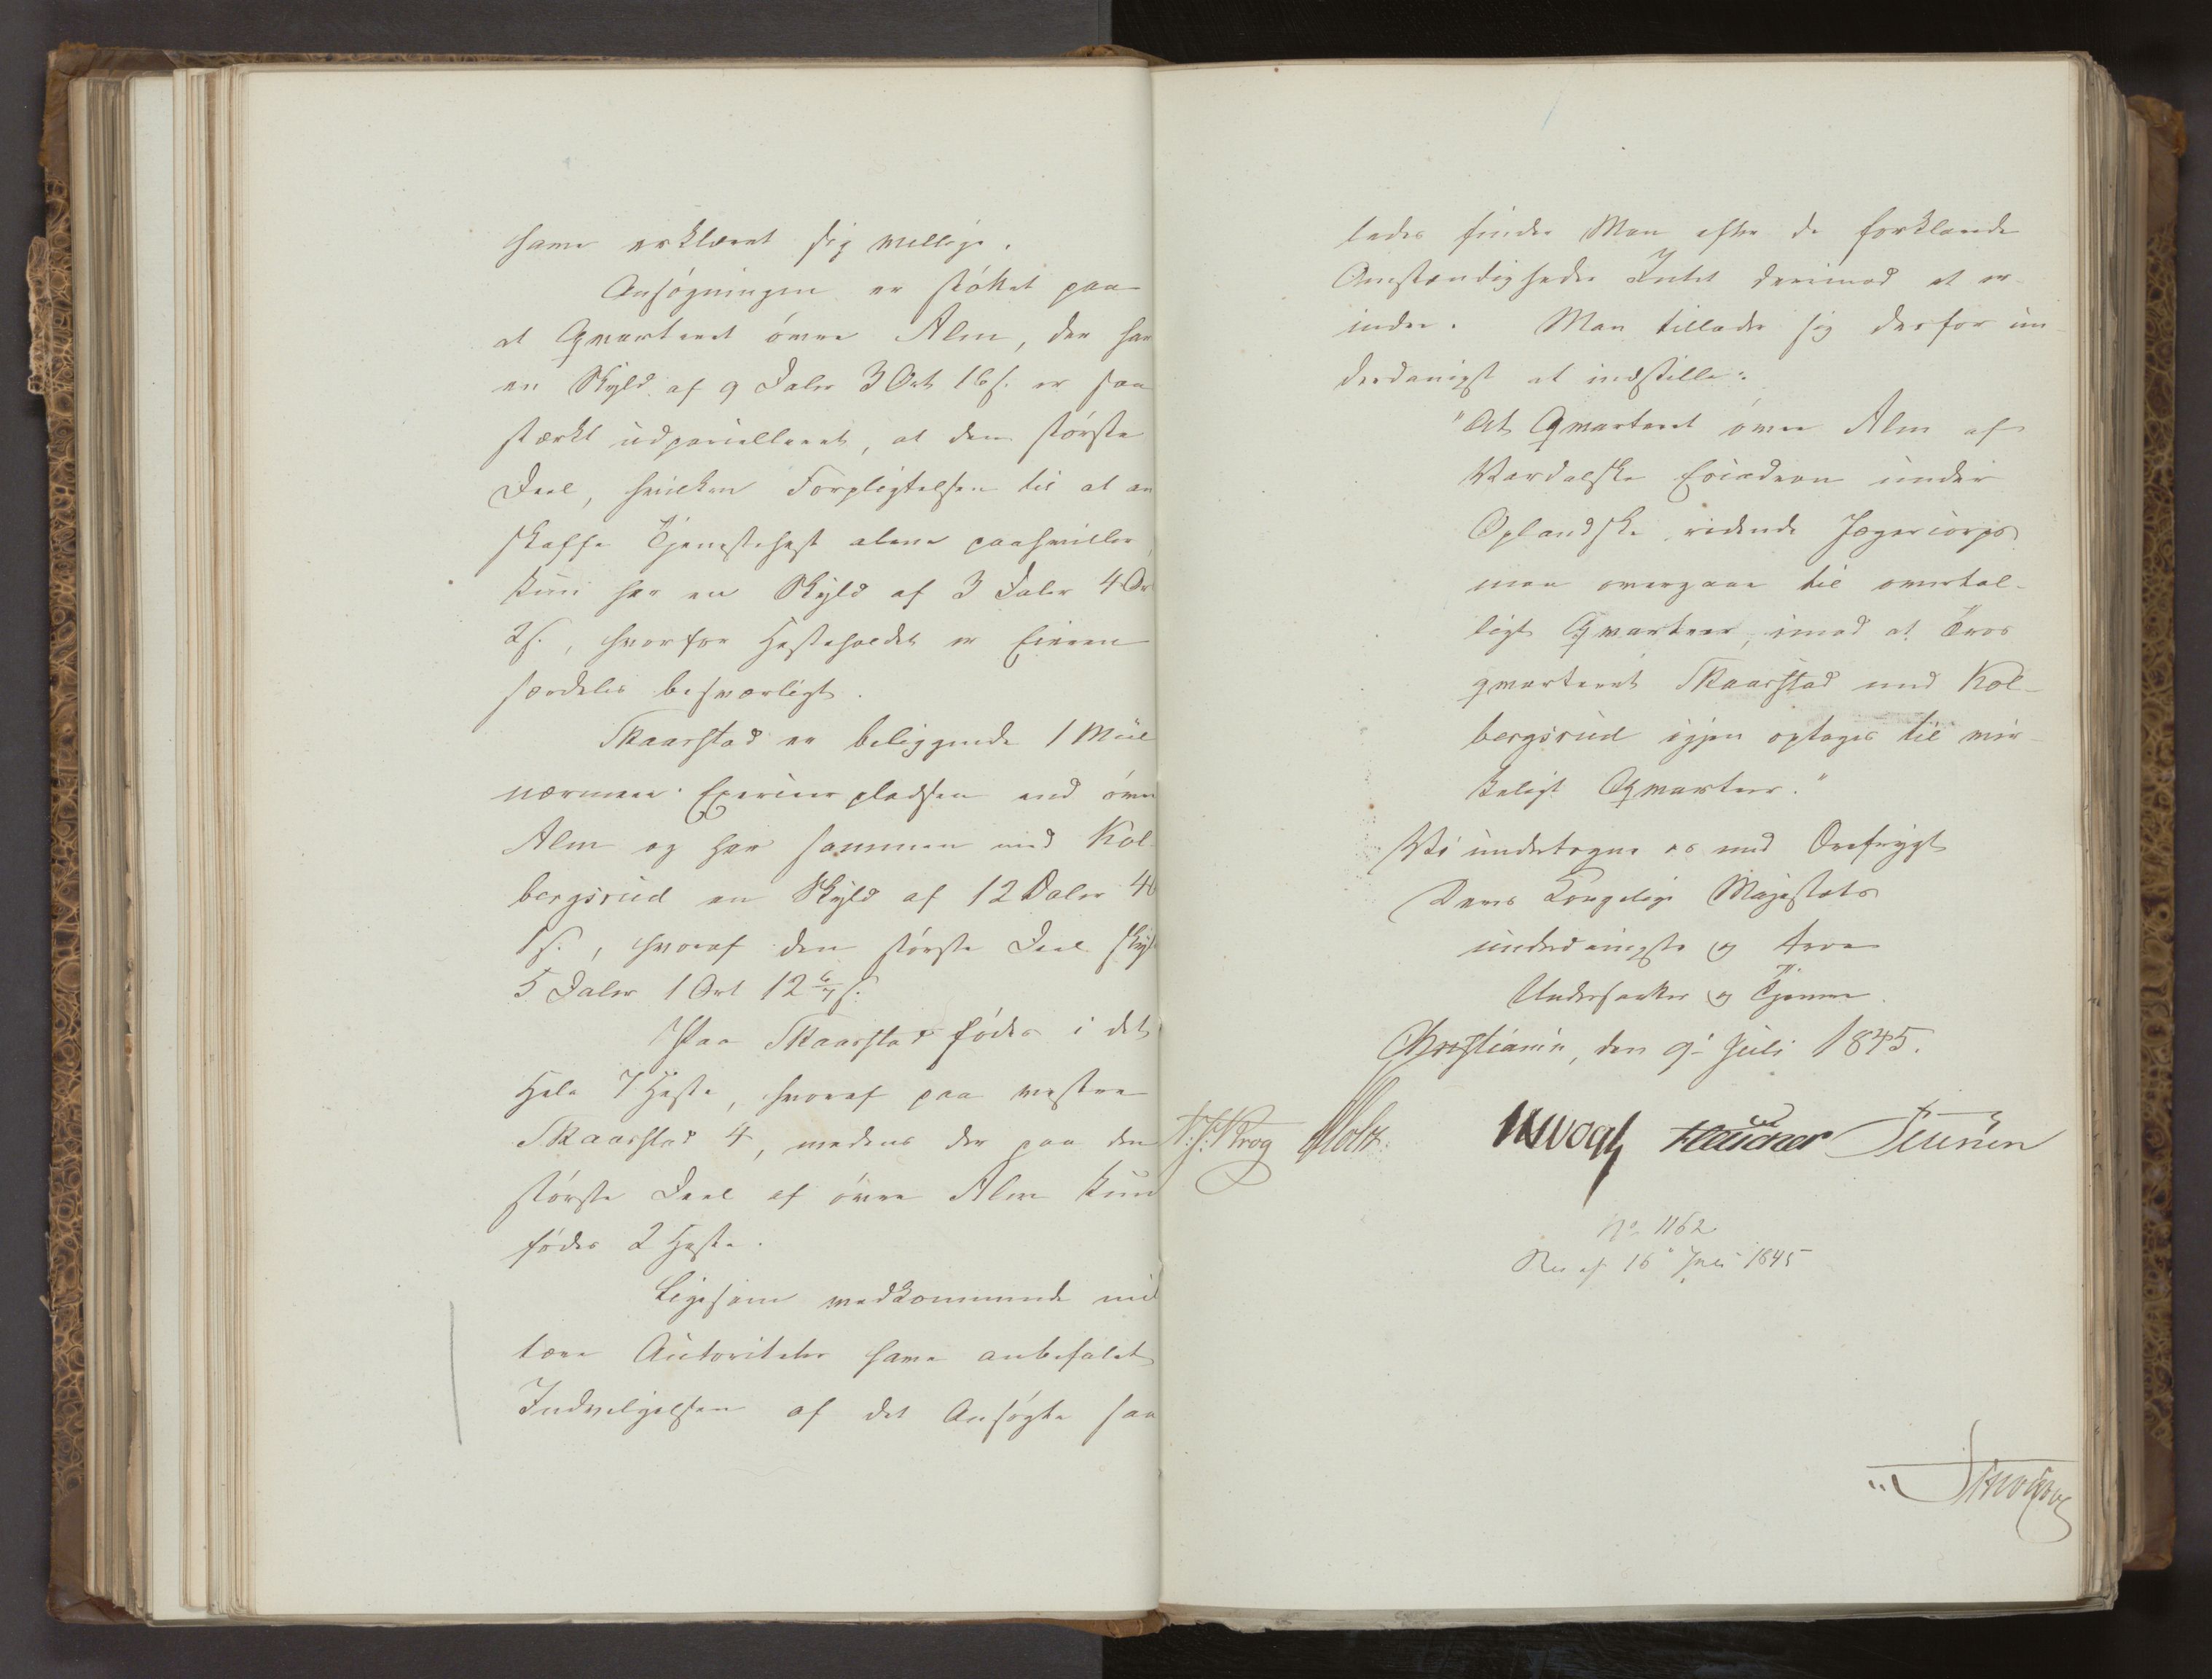 have erklæret sig willige.
Ansøgningen er støttet paa
at Qvarteret øvre Alm, der har
en Skyld af 9 Daler 3 Ort 16 s. er saa
stærkt udparcelleret, at den største
Deel, hvilken Forpligtelsen til at an
skaffe Tjenestehest alene paahviler,
kun har en Skyld af 3 Daler 4 Ort
2 s., hvorfor Hesteholdet er Eieren
særdeles besværligt.
Skaarstad er beliggende 1 Miil
nærmere Exerceerpladsen end øvre
Alm og har sammen med Kol
bergsrud en Skyld af 12 Daler 4 O
1 s., hvoraf den største Deel skyl
5 Daler 1 Ort 12 6/7 s.
Paa Skaarstad fødes i det
Hele 7 Heste, hvoraf paa vestre
Skaarstad 4, medens der paa den
største Deel af øvre Alm kun
fødes 2 Heste.
Ligesom vedkommende mili
tære Autoriteter have anbefalet
Indvilgelsen af det Ansøgte saa
ledes finder Man efter de forklarede
Omstændigheder Intet derimod at er-
indre. Man tillader sig derfor un-
derdanigst at indstille:
"At Qvarteret øvre Alm af
Vardalske Escadron under
Oplandske ridende Jægercorps
maa overgaae til overtal-
ligt Qvarteer, imod at Tros
qvarteret Skaarstad med Kol-
bergsrud igjen optages til vir-
keligt Qvarteer."
Vi undertegne os med Ærefrygt
Deres Kongelige Majestæts
underdanigste og troe
Undersaatter og Tjenere.
Christiania, den 9de Juli 1845.
N. J. Krog Holst. Vogt
No 1162
Res af 16de Juli 1845